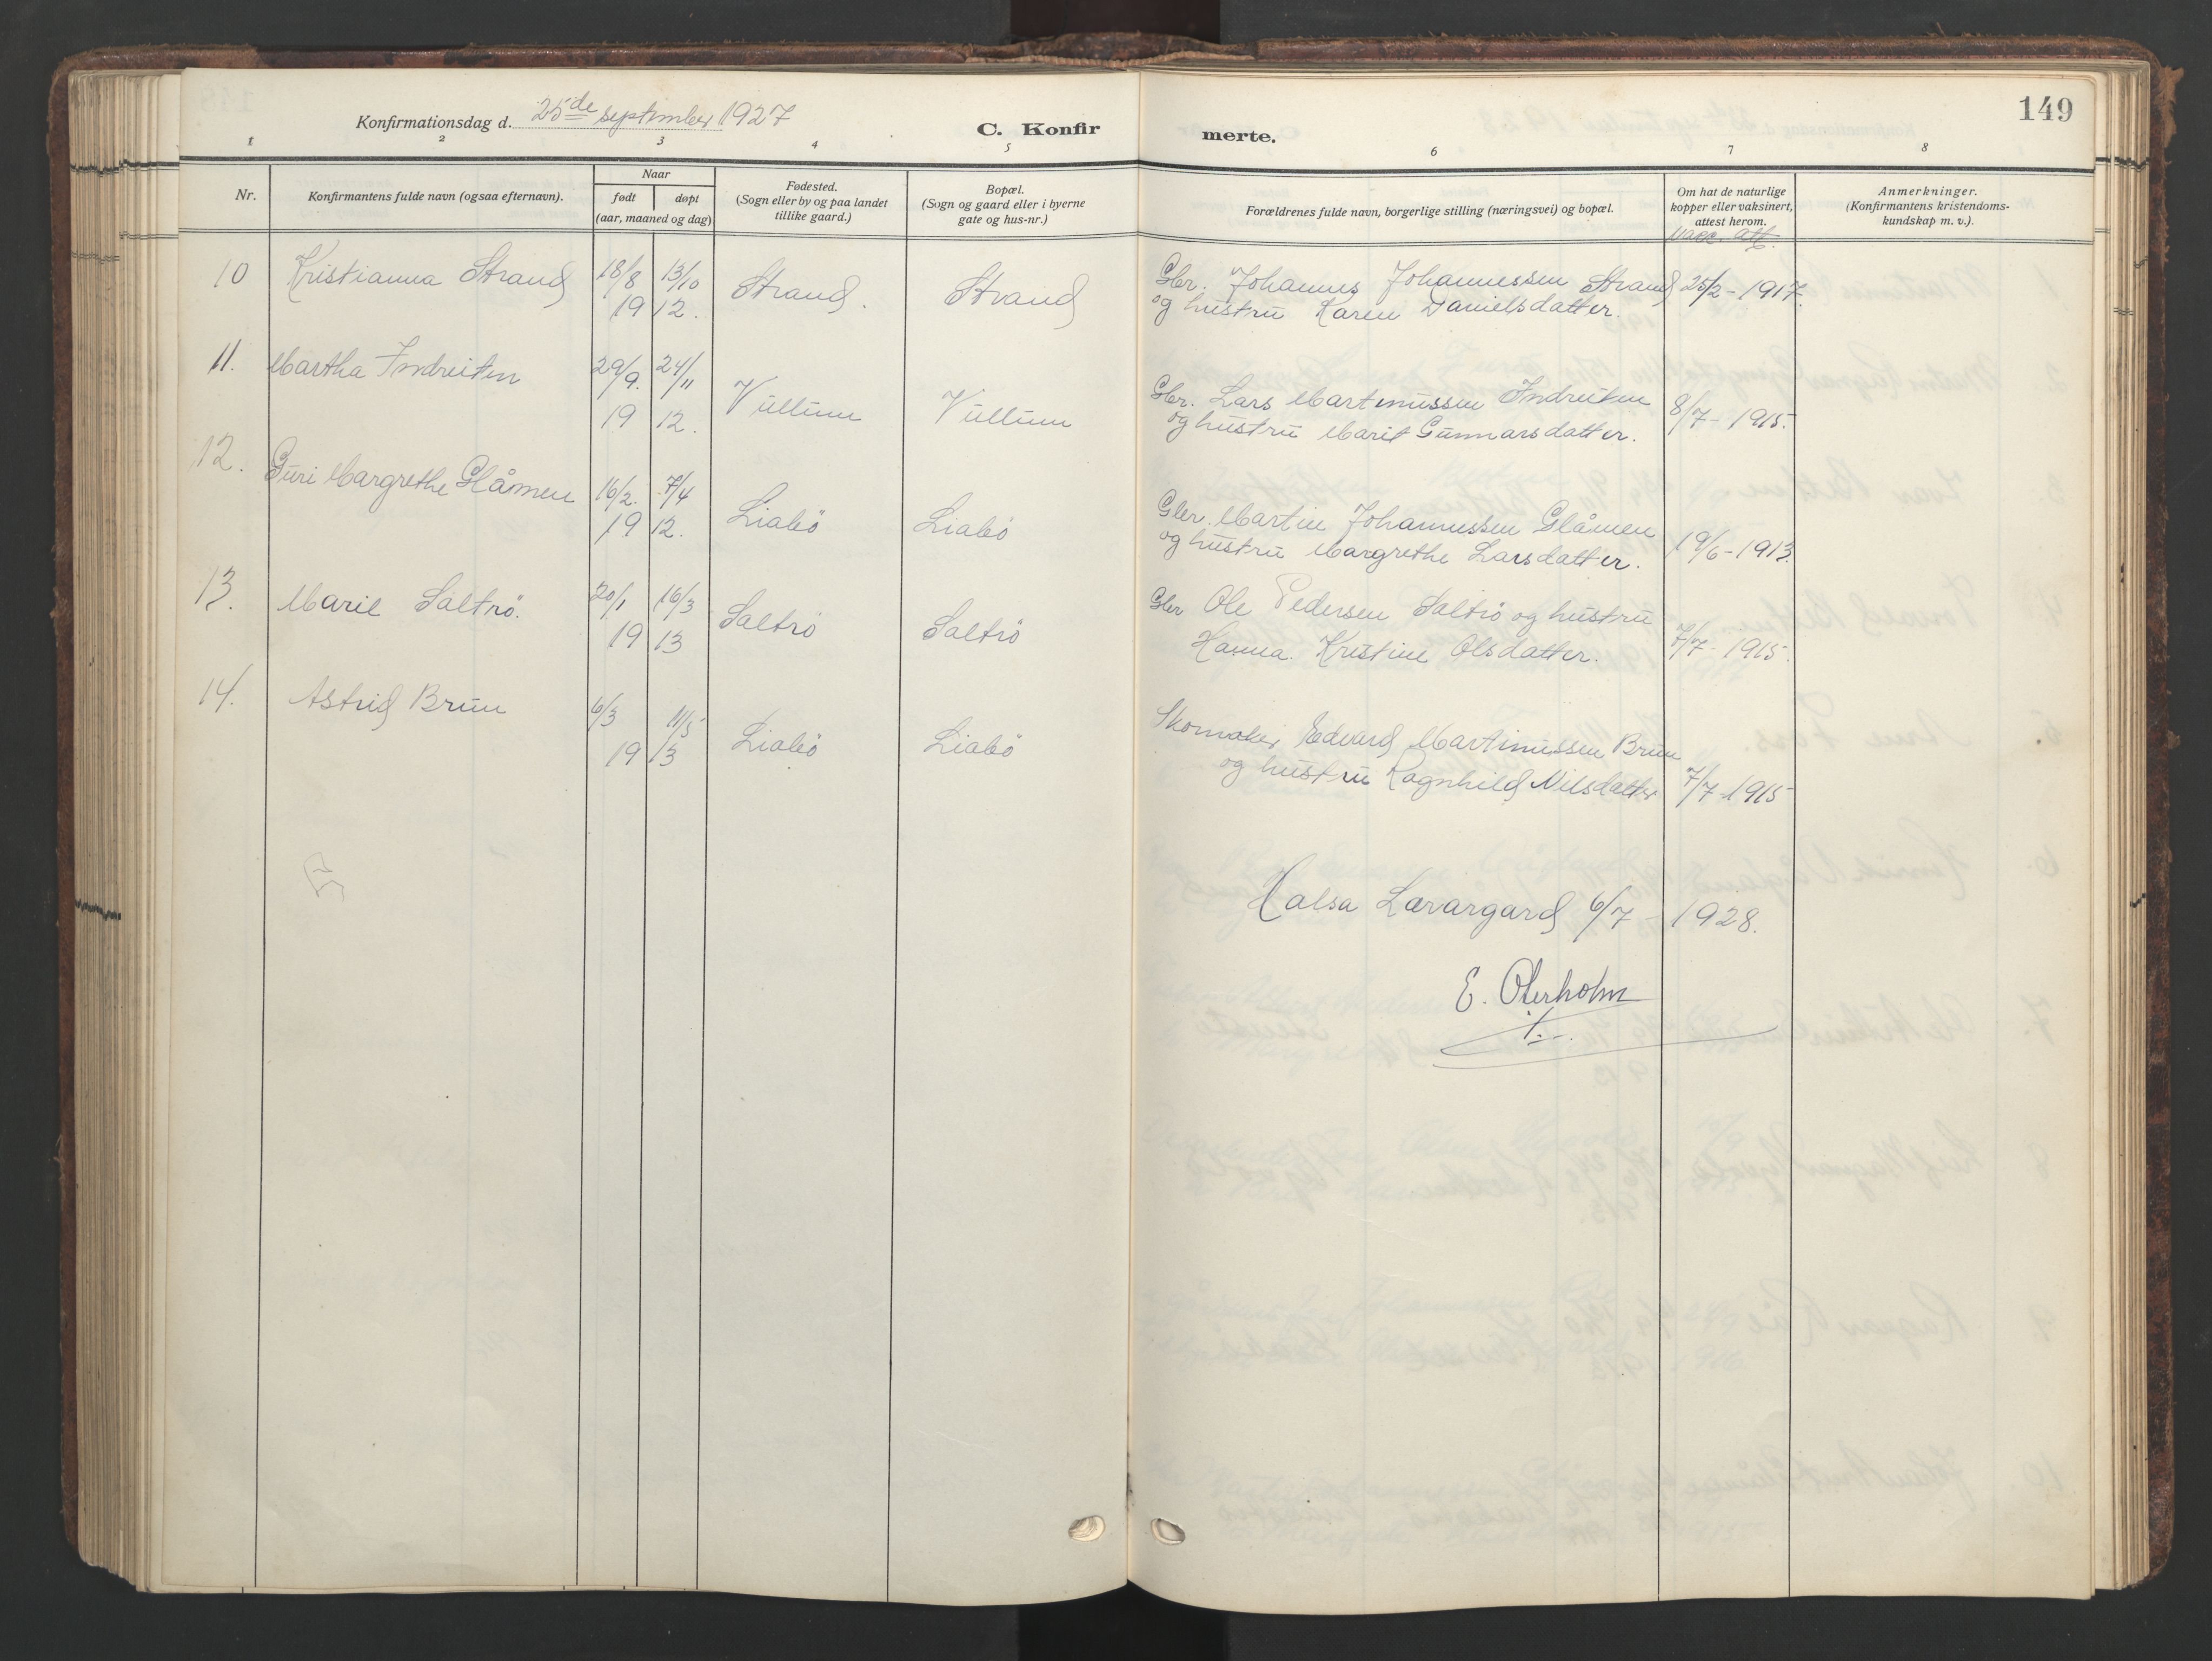 149
Konfirmationsdag d. 25de september 1927
C. Konfirmerte.
1 2 3 4 5 6 7 8
Nr.
Konfirmantens fulde navn (ogsaa efternavn).
Naar
født døpt
(aar, maaned og dag)
Fødested.
(Sogn eller by og paa landet
tillike gaard.)
Bopæl.
(Sogn og gaard eller i byerne
gate og hus-nr.)
Forældrenes fulde navn, borgerlige stilling (næringsvei) og bopæl.
Om hat de naturlige
kopper eller vaksinert,
attest herom.
Vacc. att.
Anmerkninger.
(Konfirmantens kristendoms-
kundskap m. v.).
10 Kristianna Strand 18/8 13/10 Strand. Strand Gbr. Johannes Johannessen Strand 25/2-1917.
19 12. og hustru Karen Danielsdatter.
11. Martha Indreiten 29/9. 24/11 Vullum Vullum Gbr. Lars Martinussen Indreiten 8/7-1915.
19 12. og hustru Marit Gunnarsdatter.
12. Guri Margrethe Glåmen 16/2. 7/4 Liabö Liabö Gbr. Martin Johannessen Glåmen 19/6-1913.
19 12. og hustru Margrethe Larsdatter.
13. Marie Saltrö. 20/1 16/3 Saltrö Saltrö Gbr Ole Pedersen Saltrö og hustru
19 13 Hanna Kristine Olsdatter. 7/7-1915.
14. Astrid Brun 6/3 11/5 Liabö Liabö Skomaker Edvard Martinussen Brun
19 13 og hustru Ragnhild Nilsdatter 7/7-1915
Halsa Lærargard 6/7-1928.
E. Oterholm